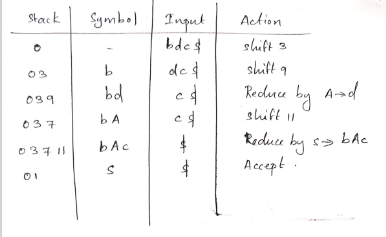 Stack Symbol Input Action
0 - bdc$ shift 3
03 b dc$ shift 9
039 bd c$ Reduce by A→d
037 bA c$ shift 11
03711 bAc $ Reduce by s→ bAc
01 S $ Accept.